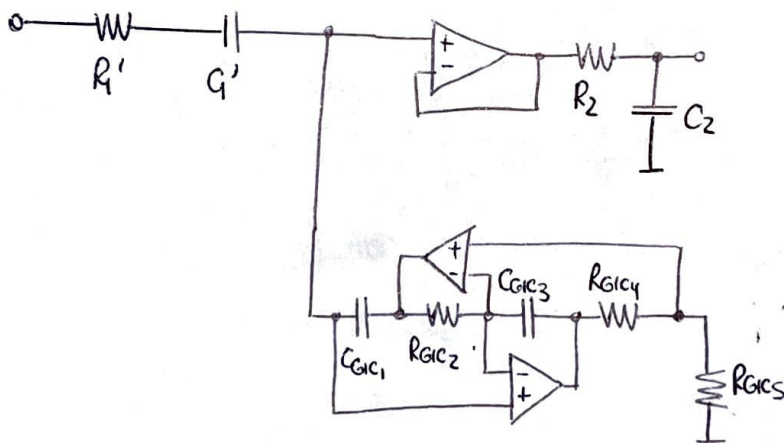 +
-
R1'
C1'
R2
C2
+
-
CGIC1
RGIC2
CGIC3
RGIC4
-
+
RGIC5